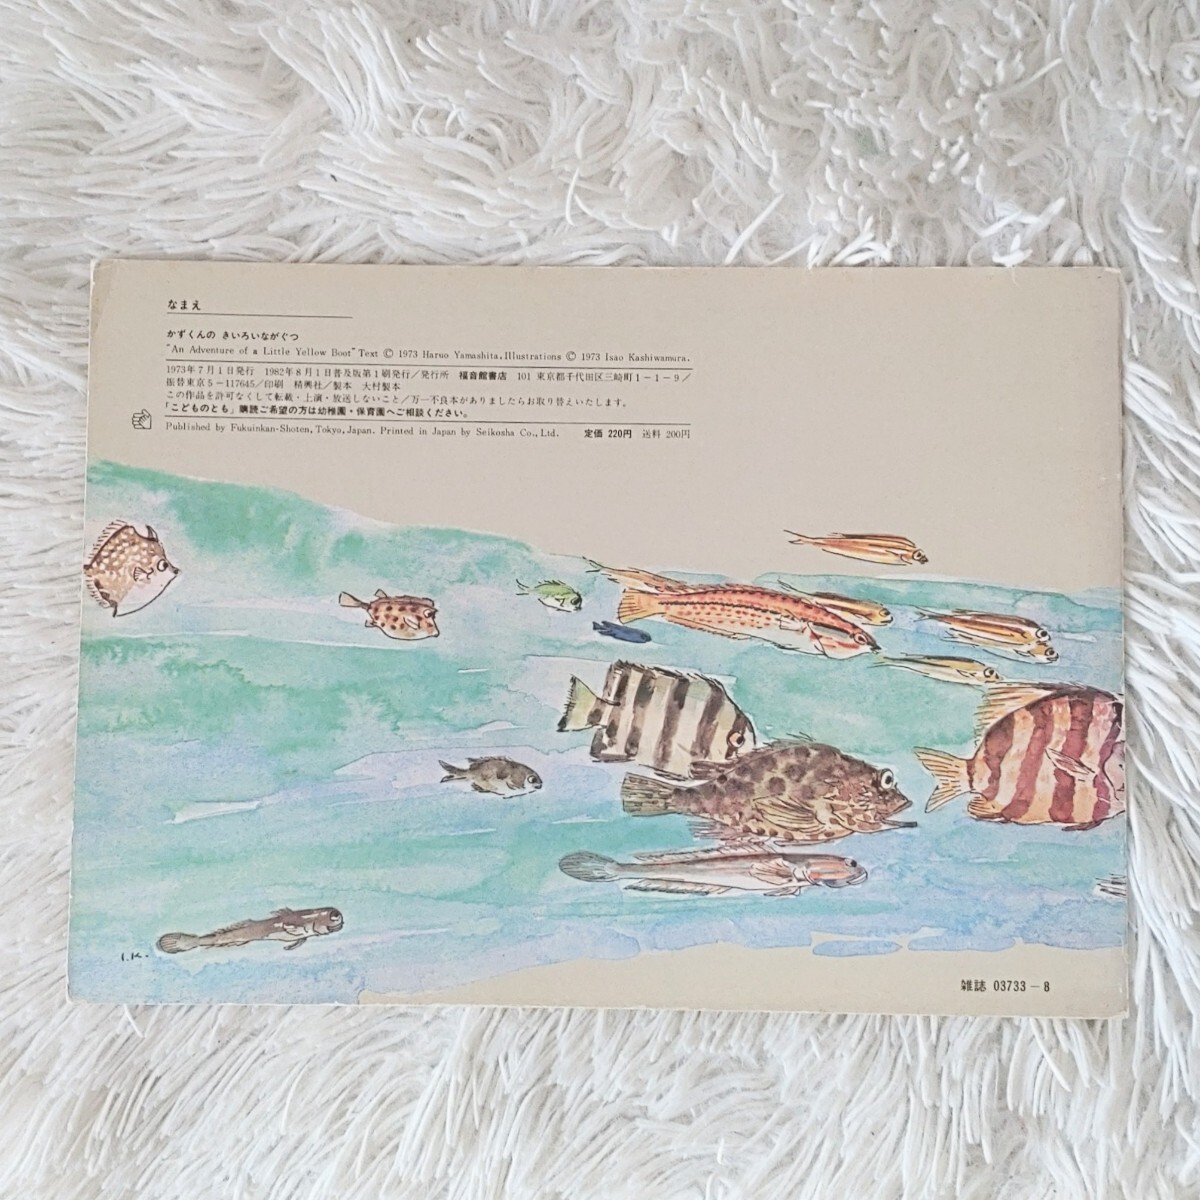 なまえ
かずくんの きいろいながぐつ
"An Adventure of a Little Yellow Boot" Text © 1973 Haruo Yamashita, Illustrations © 1973 Isao Kashiwamura.
1973年7月1日発行 1982年8月1日普及版第1刷発行／発行所 福音館書店 101 東京都千代田区三崎町1−1−9／
振替東京5−117645／印刷 精興社／製本 大村製本
この作品を許可なくして転載・上演・放送しないこと／万一不良本がありましたらお取り替えいたします。
「こどものとも」購読ご希望の方は幼稚園・保育園へご相談ください。
Published by Fukuinkan-Shoten, Tokyo, Japan. Printed in Japan by Seikosha Co., Ltd. 定価 220円 送料 200円
I.K.
雑誌 03733−8